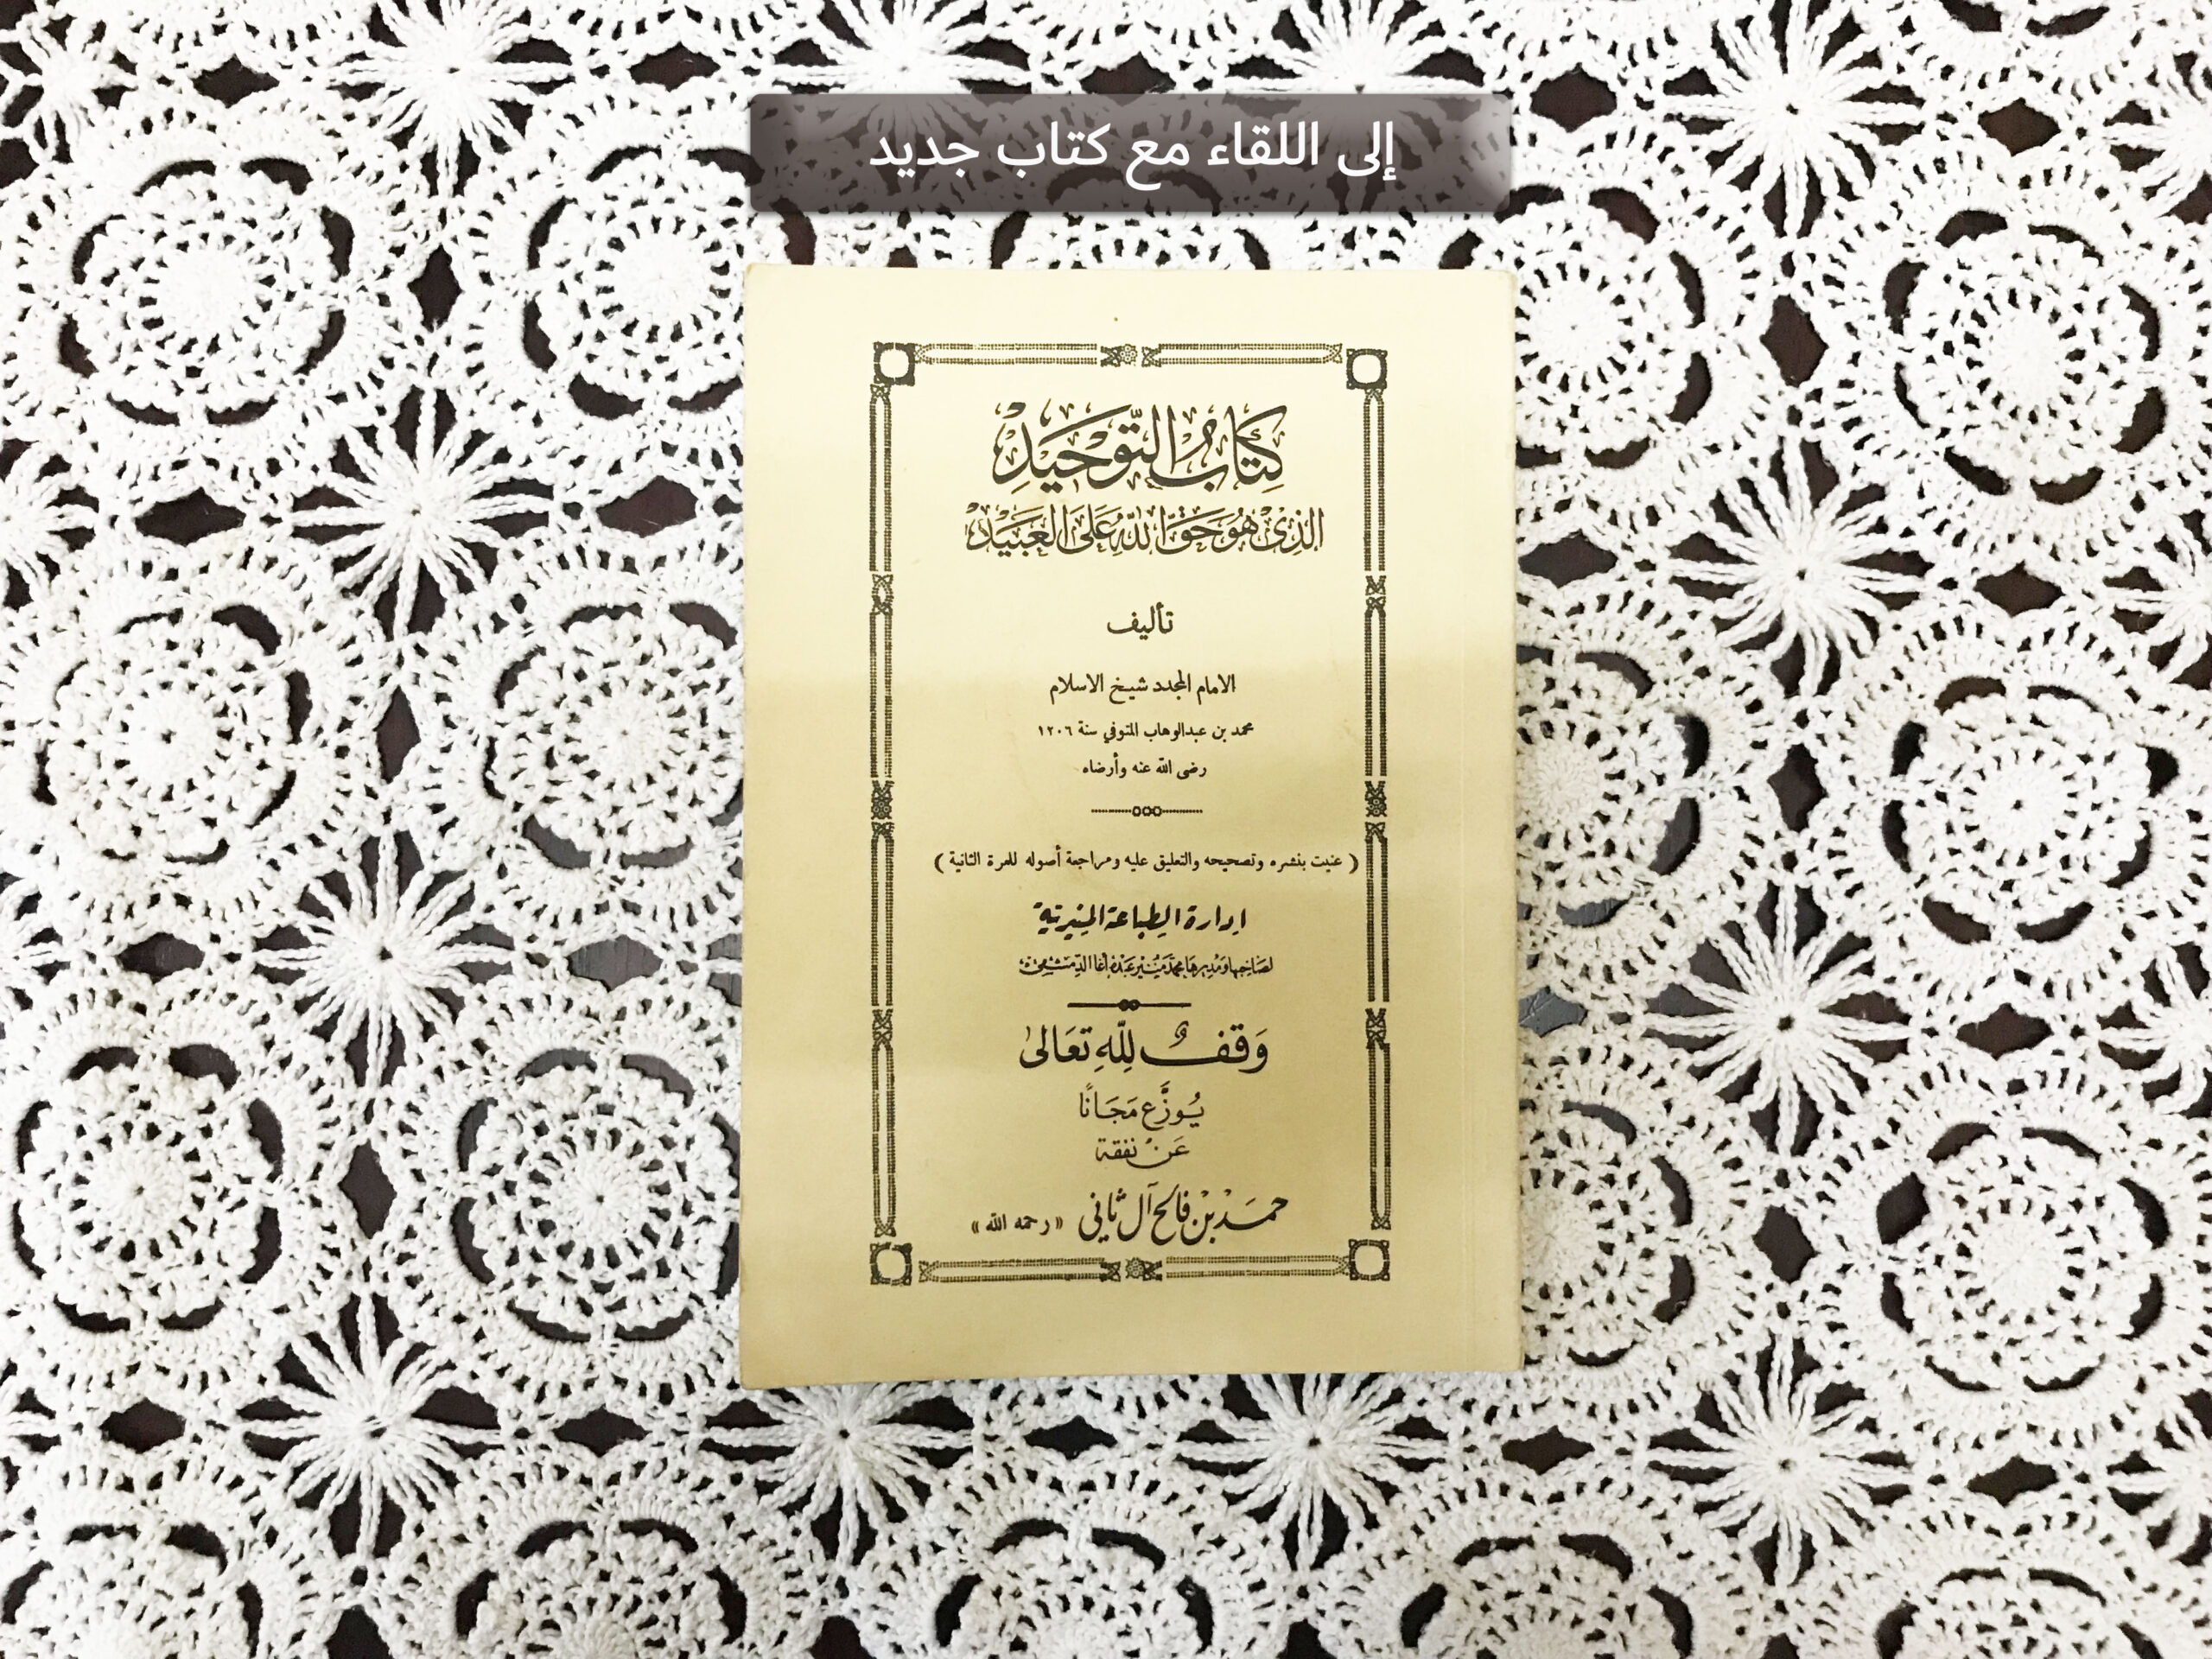 إلى اللقاء مع كتاب جديد
كِتَابُ التَّوْحِيْدِ
الذِيْ هُوَ حَقّ اللهِ عَلَى العَبِيْدْ
تأليف
الامام المجدد شيخ الاسلام
محمد بن عبدالوهاب المتوفي سنة ١٢٠٦
رضى الله عنه وأرضاه
( عنيت بنشره وتصحيحه والتعليق عليه ومراجعة أصوله للمرة الثانية )
ادارة الطباعة المنيرية
لصاحبها ومديرها محمد منير عبده أغا الدمشقي
وَقفٌ لِلّهِ تعَالى
يُوزَّع مَجَانًا
عَنْ نفقة
حمَد بْن فالح آل ثاني « رحمه الله »